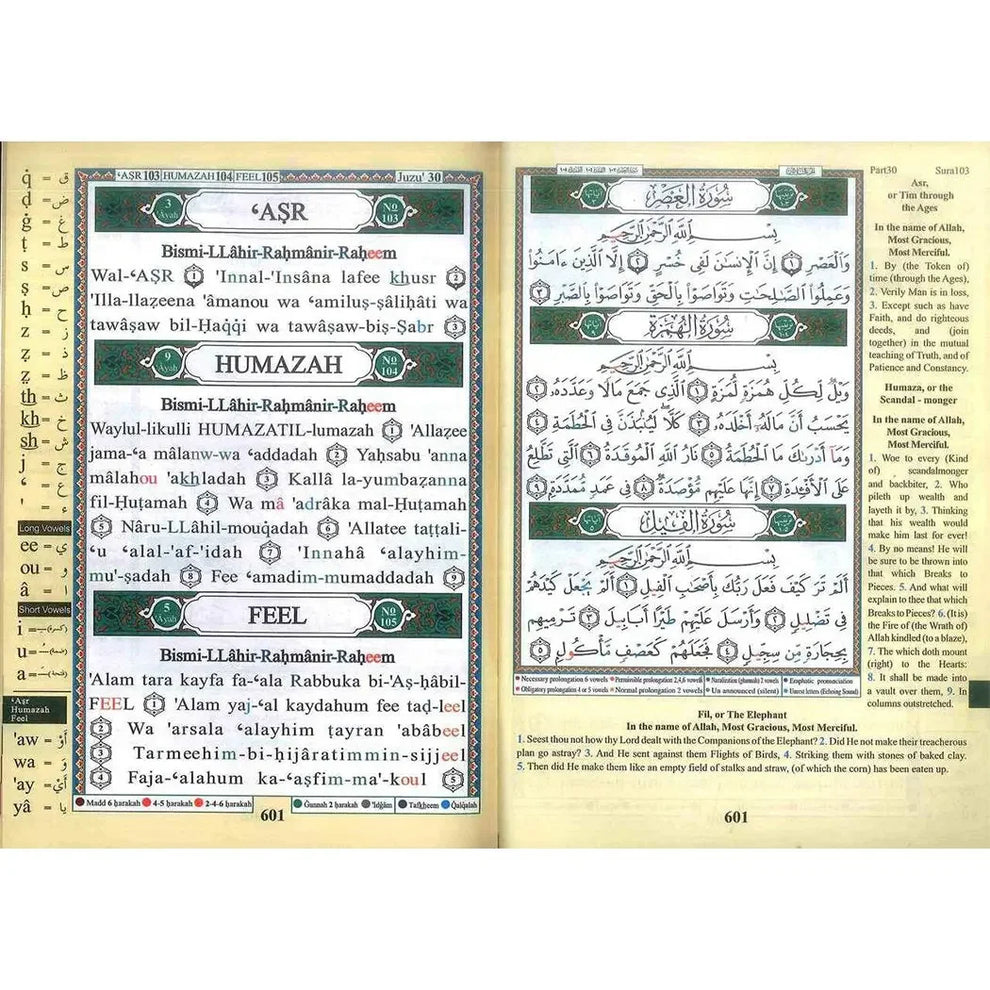 ʻAṢR 103 HUMAZAH 104 FEEL 105 Juzu' 30
3 Âyah ʻAṢR No 103
Bismi-LLâhir-Raḥmânir-Raḥeem
Wal-ʻAṢR 1 'Innal-'Insâna lafee khusr 2
'Illa-llaẓeena 'âmanou wa ʻamiluṣ-ṣâliḥâti wa
tawâṣaw bil-Ḥaqqi wa tawâṣaw-biṣ-Ṣabr 3
9 Âyah HUMAZAH No 104
Bismi-LLâhir-Raḥmânir-Raḥeem
Waylul-likulli HUMAZATIL-lumazah 1 'Allaẓee
jama-ʻa mâlanw-wa ʻaddadah 2 Yaḥsabu 'anna
mâlahou 'akhladah 3 Kallâ la-yumbaẓanna
fil-Ḥuṭamah 4 Wa mâ 'adrâka mal-Ḥuṭamah
5 Nâru-LLâhil-mouqadah 6 'Allatee taṭṭali-
ʻu ʻalal-'af-'idah 7 'Innahâ ʻalayhim-
mu'-ṣadah 8 Fee ʻamadim-mumaddadah 9
5 Âyah FEEL No 105
Bismi-LLâhir-Raḥmânir-Raḥeem
'Alam tara kayfa fa-ʻala Rabbuka bi-'Aṣ-ḥâbil-
FEEL 1 'Alam yaj-ʻal kaydahum fee taḍ-leel
2 Wa 'arsala ʻalayhim ṭayran 'abâbeel
3 Tarmeehim-bi-ḥijâratimmin-sijjeel
4 Faja-ʻalahum ka-ʻaṣfim-ma'-koul 5
Madd 6 ḥarakah 4-5 ḥarakah 2-4-6 ḥarakah Ġunnah 2 ḥarakah 'Idġâm Tafkheem Qalqalah
601
q̇ = ق
ḍ = ض
ġ = غ
ṭ = ط
s = س
ṣ = ص
ḥ = ح
z = ز
ẓ = ذ
ẓ = ظ
th = ث
kh = خ
sh = ش
j = ج
ʻ = ع
' = ء
Long Vowels
ee = ي
ou = و
â = ا
Short Vowels
i = (كسرة)
u = (ضمة)
a = (فتحة)
ʻAṣr
Humazah
Feel
'aw = أَوْ
wa = وَ
'ay = أَيْ
yâ = يا
سُورَةُ الْعَصْرِ
بِسْمِ اللَّهِ الرَّحْمَٰنِ الرَّحِيمِ
وَالْعَصْرِ ١ إِنَّ الْإِنسَانَ لَفِي خُسْرٍ ٢ إِلَّا الَّذِينَ آمَنُوا
وَعَمِلُوا الصَّالِحَاتِ وَتَوَاصَوْا بِالْحَقِّ وَتَوَاصَوْا بِالصَّبْرِ ٣
سُورَةُ الْهُمَزَةِ
بِسْمِ اللَّهِ الرَّحْمَٰنِ الرَّحِيمِ
وَيْلٌ لِّكُلِّ هُمَزَةٍ لُّمَزَةٍ ١ الَّذِي جَمَعَ مَالًا وَعَدَّدَهُ ٢
يَحْسَبُ أَنَّ مَالَهُ أَخْلَدَهُ ٣ كَلَّا لَيُنبَذَنَّ فِي الْحُطَمَةِ ٤
وَمَا أَدْرَاكَ مَا الْحُطَمَةُ ٥ نَارُ اللَّهِ الْمُوقَدَةُ ٦ الَّتِي تَطَّلِعُ
عَلَى الْأَفْئِدَةِ ٧ إِنَّهَا عَلَيْهِم مُّؤْصَدَةٌ ٨ فِي عَمَدٍ مُّمَدَّدَةٍ ٩
سُورَةُ الْفِيلِ
بِسْمِ اللَّهِ الرَّحْمَٰنِ الرَّحِيمِ
أَلَمْ تَرَ كَيْفَ فَعَلَ رَبُّكَ بِأَصْحَابِ الْفِيلِ ١ أَلَمْ يَجْعَلْ كَيْدَهُمْ
فِي تَضْلِيلٍ ٢ وَأَرْسَلَ عَلَيْهِمْ طَيْرًا أَبَابِيلَ ٣ تَرْمِيهِم
بِحِجَارَةٍ مِّن سِجِّيلٍ ٤ فَجَعَلَهُمْ كَعَصْفٍ مَّأْكُولٍ ٥
Necessary prolongation 6 vowels Permissible prolongation 2,4,6 vowels Nazalization (ghunnah) 2 vowels Emphatic pronunciation
Obligatory prolongation 4 or 5 vowels Normal prolongation 2 vowels Un announced (silent) Unrest letters (Echoing Sound)
Part30 Sura103
Asr,
or Tim through
the Ages
In the name of Allah,
Most Gracious,
Most Merciful.
1. By (the Token of)
time (through the Ages),
2. Verily Man is in loss,
3. Except such as have
Faith, and do righteous
deeds, and (join
together) in the mutual
teaching of Truth, and of
Patience and Constancy.
Humaza, or the
Scandal - monger
In the name of Allah,
Most Gracious,
Most Merciful.
1. Woe to every (Kind
of) scandalmonger
and backbiter, 2. Who
pileth up wealth and
layeth it by, 3. Thinking
that his wealth would
make him last for ever!
4. By no means! He will
be sure to be thrown into
that which Breaks to
Pieces. 5. And what will
explain to thee that which
Breaks to Pieces? 6. (It is)
the Fire of (the Wrath of)
Allah kindled (to a blaze),
7. The which doth mount
(right) to the Hearts:
8. It shall be made into
a vault over them, 9. In
columns outstretched.
Fil, or The Elephant
In the name of Allah, Most Gracious, Most Merciful.
1. Seest thou not how thy Lord dealt with the Companions of the Elephant? 2. Did He not make their treacherous
plan go astray? 3. And He sent against them Flights of Birds, 4. Striking them with stones of baked clay.
5. Then did He make them like an empty field of stalks and straw, (of which the corn) has been eaten up.
601